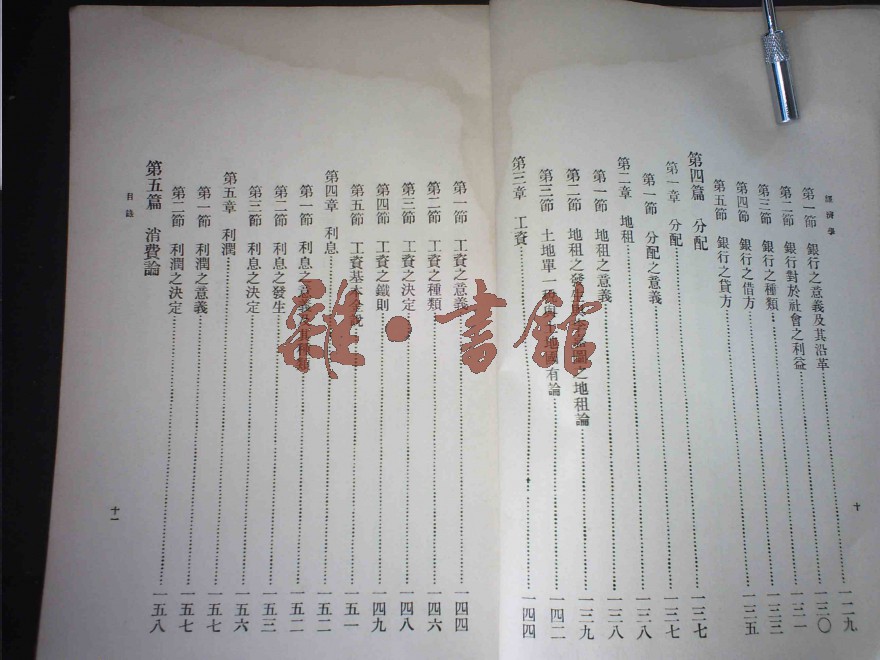 經濟學
第一節 銀行之意義及其沿革……一二九
第二節 銀行對於社會之利益……一三〇
第三節 銀行之種類……一三一
第四節 銀行之借方……一三三
第五節 銀行之貸方……一三五
第四篇 分配
第一章 分配……一三七
第一節 分配之意義……一三七
第二章 地租……一三八
第一節 地租之意義……一三八
第二節 地租之發生與李嘉圖之地租論……一三九
第三節 土地單一稅與土地國有論……一四二
第三章 工資……一四四
十
第一節 工資之意義……一四四
第二節 工資之種類……一四六
第三節 工資之決定……一四八
第四節 工資之鐵則……一四九
第五節 工資基本金說……一五一
第四章 利息……一五二
第一節 利息之意義及其種類……一五二
第二節 利息之發生……一五三
第三節 利息之決定……一五六
第五章 利潤……一五七
第一節 利潤之意義……一五七
第二節 利潤之決定……一五八
第五篇 消費論
目錄
十一
雜·書館